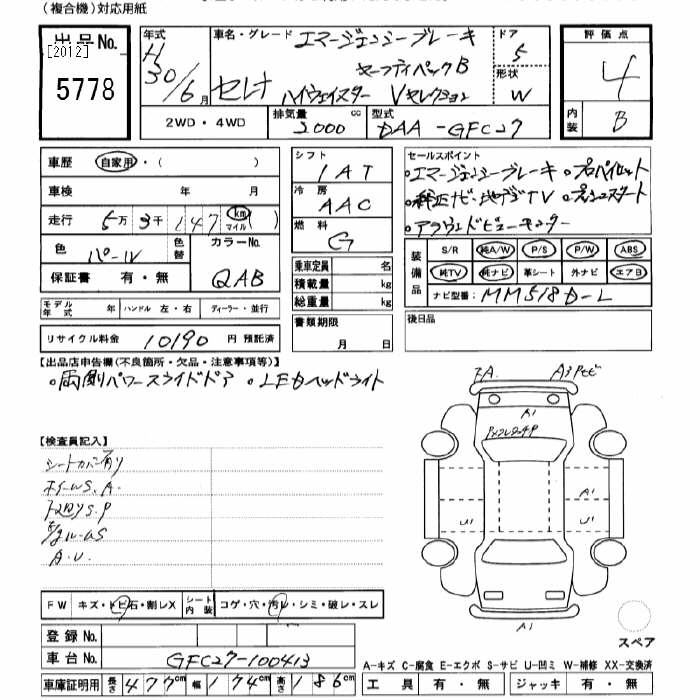 (複合機)対応用紙
出品No.
[2012]
5778
年式
H30/6月
車名・グレード エマージェンシーブレーキ
セーフティパックB
セレナ ハイウェイスター Vセレクション
ドア
5
形状
W
評価点
4
内装
B
2WD・4WD
排気量
2000cc
型式
DAA-GFC27
車歴 自家用・( )
車検 年 月
走行 5万3千147km マイル( )
色 パール 色替 カラーNo. QAB
保証書 有・無
シフト
IAT
冷房
AAC
燃料
G
乗車定員 名
積載量 kg
総重量 kg
書類期限
月 日
セールスポイント
・エマージェンシーブレーキ ・プロパイロット
・純正ナビ・地デジTV ・プッシュスタート
・アラウンドビューモニター
装備品
S/R 純A/W P/S P/W ABS
純TV 純ナビ 革シート 外ナビ エアB
ナビ型番: MM518D-L
モデル年式 年 ハンドル 左・右 ディーラー・並行
リサイクル料金 10190 円 預託済
後日品
【出品店申告欄(不良箇所・欠品・注意事項等)】
・両側パワースライドドア ・LEDヘッドライト
【検査員記入】
シートカバー有り
ホイールS.A.
下廻りS.P
A.U.
A1
A1
U1
U1
A1
FW キズ・トビ石・割レX シート内装 コゲ・穴・汚レ・シミ・破レ・スレ
登録No.
車台No. GFC27-100413
車庫証明用 長さ 477cm 幅 174cm 高さ 186cm
スペア
A-キズ C-腐食 E-エクボ S-サビ U-凹ミ W-補修 XX-交換済
工具 有・無 ジャッキ 有・無